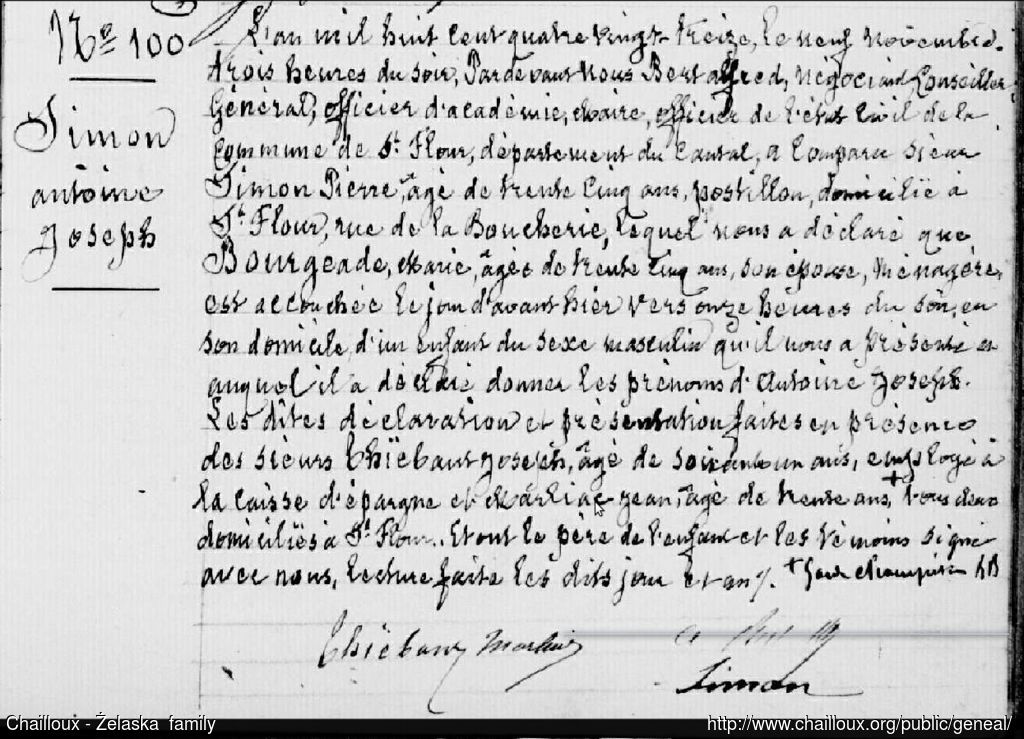 Nº 100
Simon
antoine
Joseph
L'an mil huit cent quatre vingt treize, le neuf novembre,
trois heures du soir, Pardevant Nous Bert alfred, négociant Conseiller
Général, officier d'académie, Maire, officier de l'état civil de la
Commune de St Flour, département du Cantal, a Comparu Sieur
Simon Pierre, âgé de trente cinq ans, postillon, domicilié à
St Flour, rue de la Boucherie, lequel nous a déclaré que
Bourgeade, Marie, âgée de trente cinq ans, son épouse, Ménagère,
est accouchée le jour d'avant hier vers onze heures du soir, en
son domicile, d'un enfant du sexe masculin qu'il nous a présenté et
auquel il a déclaré donner les prénoms d'Antoine Joseph.
Les dites déclaration et présentation faites en présence
des sieurs Thiébaut Joseph, âgé de soixante un ans, employé à
la caisse d'épargne et Marliac Jean, âgé de trente ans,+ tous deux
domiciliés à St Flour. Et ont le père de l'enfant et les témoins signé
avec nous, lecture faite les dits jour et an. + Garde champêtre
Thiébaut
Simon
Chailloux - Želaska family
http://www.chailloux.org/public/geneal/